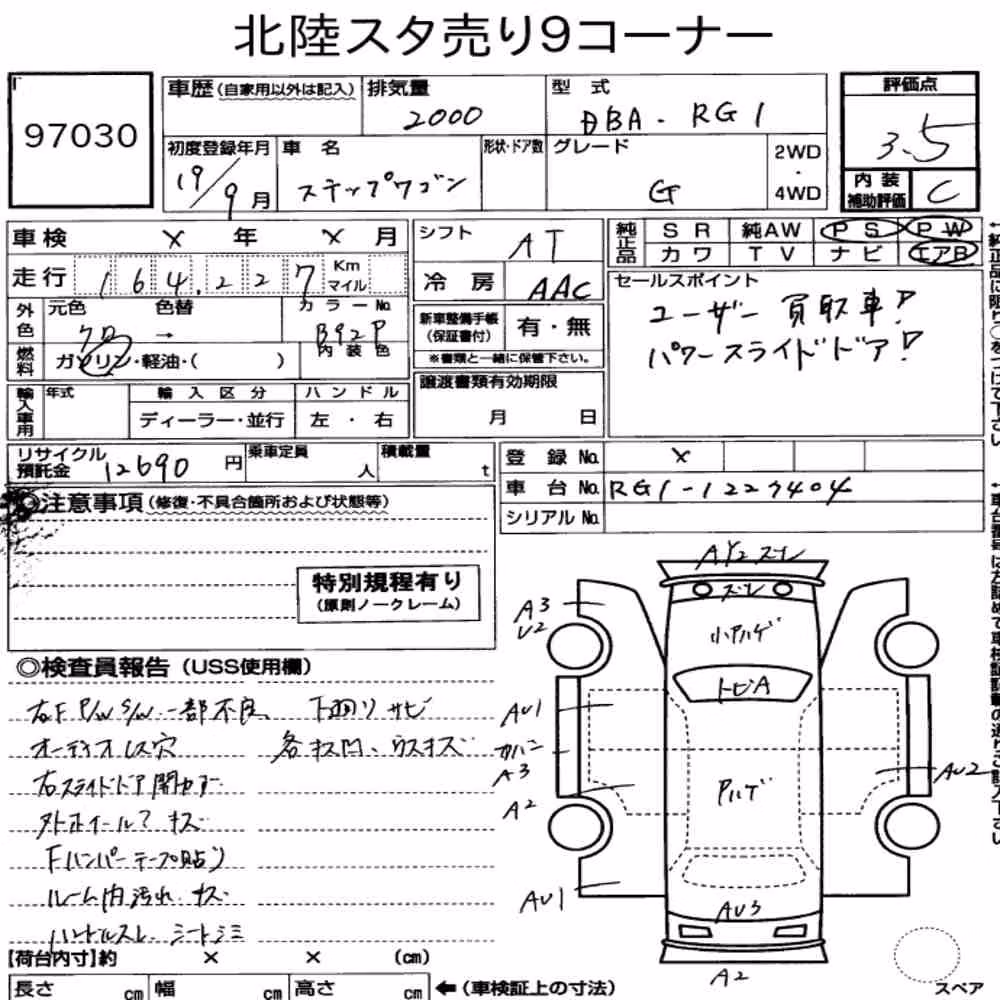 北陸スタ売り9コーナー
97030
車歴(自家用以外は記入)
排気量
2000
型式
DBA - RG1
評価点
3.5
内装
補助評価
C
初度登録年月
19/9月
車名
ステップワゴン
形状・ドア数
グレード
G
2WD
・
4WD
車検 X 年 X 月
シフト
AT
純正品
SR 純AW PS PW
カワ TV ナビ エアB
走行 164.227 Km
マイル
冷房
AAC
セールスポイント
ユーザー買取車!
パワースライドドア!
外色
元色
クロ
色替
→
カラーNo
B92P
内装色
燃料
ガソリン・軽油・( )
新車整備手帳
(保証書付)
有・無
※書類と一緒に保管下さい。
輸入車用
年式
輸入区分
ディーラー・並行
ハンドル
左・右
譲渡書類有効期限
月 日
リサイクル
預託金
12690円
乗車定員
人
積載量
t
登録No.
X
車台No.
RG1-1227404
シリアルNo.
◎注意事項(修復・不具合箇所および状態等)
特別規程有り
(原則ノークレーム)
◎検査員報告(USS使用欄)
右F P/W S/W一部不良 下回りサビ
オーディオレス穴 各キズ凹、ウスキズ
右スライドドア開かず
外ホイール?キズ
Fバンパーテープ貼り
ルーム内汚れ キズ
ハンドルスレ シートシミ
【荷台内寸】約 × × (cm)
長さ cm
幅 cm
高さ cm
←(車検証上の寸法)
AY2 スレ
ズレ
小アハゲ
トビA
A3
U2
AU1
カバー
A3
A2
AU1
Pハゲ
AU2
AU3
A2
スペア